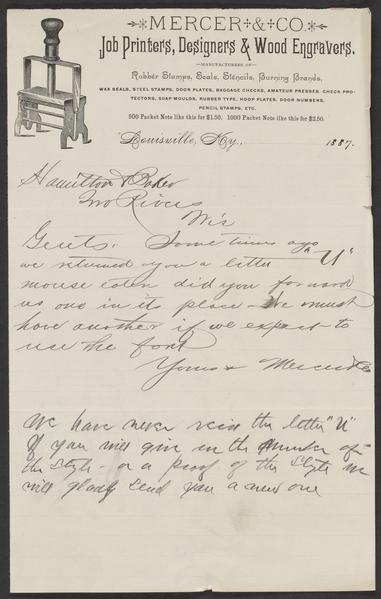 MERCER & CO.
Job Printers, Designers & Wood Engravers.
—MANUFACTURERS OF—
Rubber Stamps, Seals, Stencils, Burning Brands,
WAX SEALS, STEEL STAMPS, DOOR PLATES, BAGGAGE CHECKS, AMATEUR PRESSES, CHECK PRO-
TECTORS, SOAP MOULDS, RUBBER TYPE, HOOP PLATES, DOOR NUMBERS,
PENCIL STAMPS, ETC.
500 Packet Note like this for $1.50. 1000 Packet Note like this for $2.50.
Louisville, Ky., 1887.
Hamilton & Baker
Two Rivers
Wis
Gents: Some time ago
we returned you a letter "U"
mouse eaten did you forward
us one in its place - We must
have another if we expect to
use the font
Yours Mercer & Co
We have never recd the letter "U"
If you will give us the number of
the Style - or a proof of the Style we
will gladly send you a new one